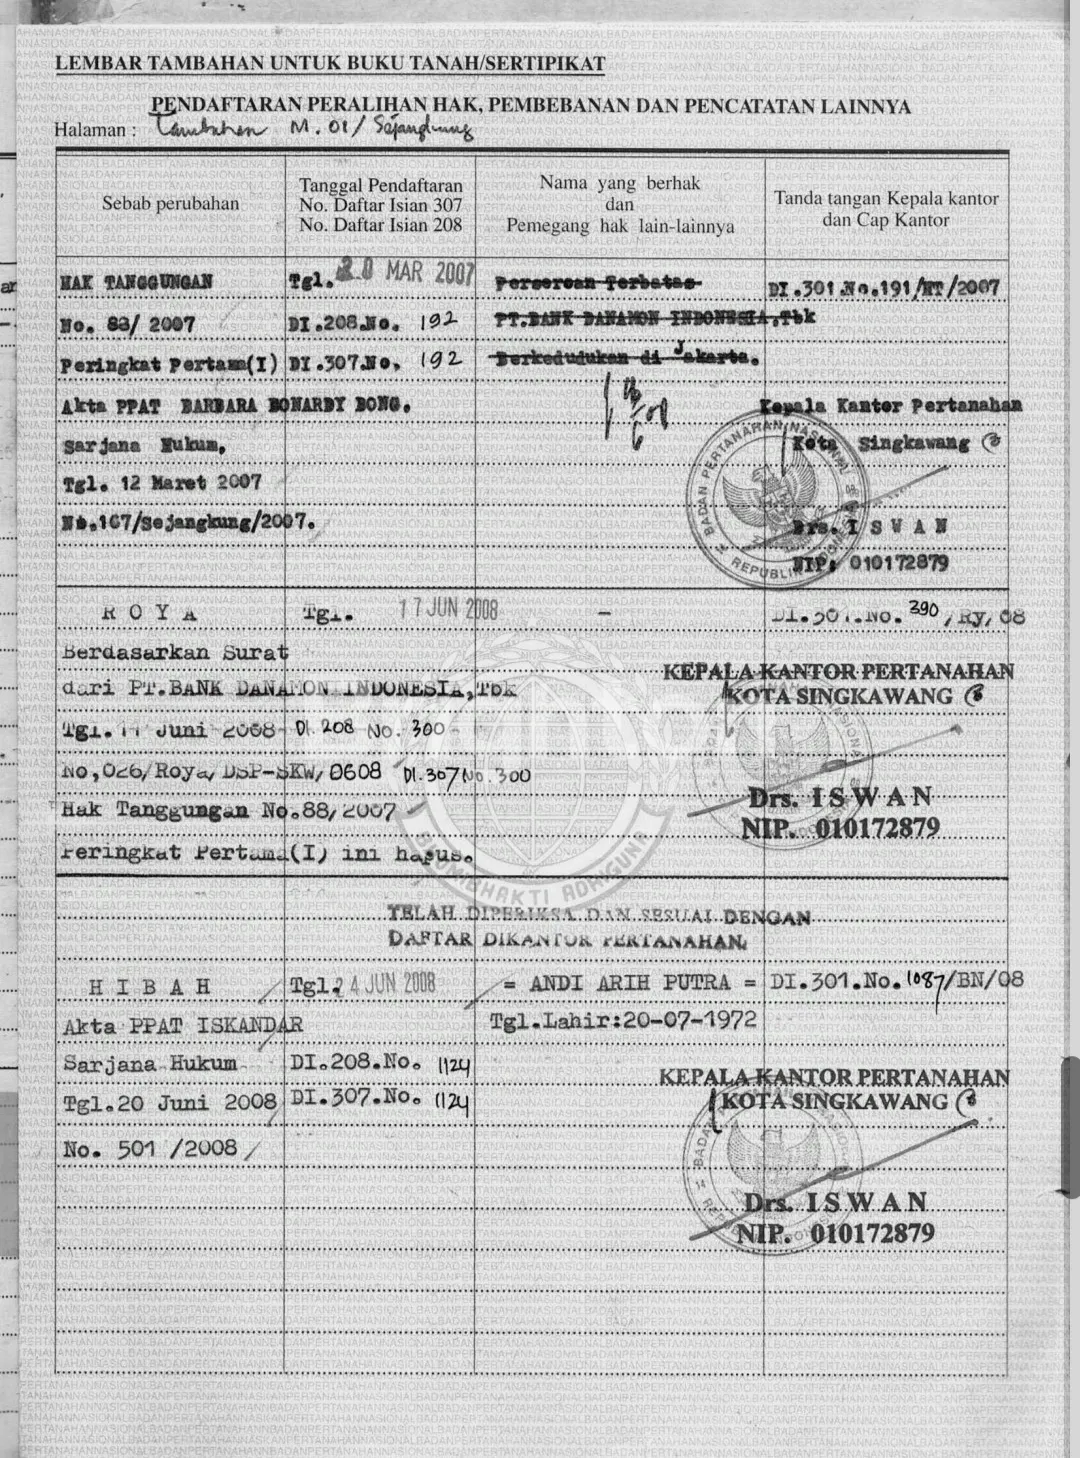 LEMBAR TAMBAHAN UNTUK BUKU TANAH/SERTIPIKAT
PENDAFTARAN PERALIHAN HAK, PEMBEBANAN DAN PENCATATAN LAINNYA
Halaman : Tambahan M.01/ Sejangkung
Sebab perubahan
Tanggal Pendaftaran
No. Daftar Isian 307
No. Daftar Isian 208
Nama yang berhak
dan
Pemegang hak lain-lainnya
Tanda tangan Kepala kantor
dan Cap Kantor
HAK TANGGUNGAN Tgl. 20 MAR 2007 Perseroan Terbatas DI.301.No.191/HT/2007
No. 88/ 2007 DI.208.No. 192 PT.BANK DANAMON INDONESIA,Tbk
Peringkat Pertama(I) DI.307.No. 192 Berkedudukan di Jakarta.
Akta PPAT BARBARA BONARDY BONG. Kepala Kantor Pertanahan
Sarjana Hukum, Kota Singkawang
Tgl. 12 Maret 2007
No.167/Sejangkung/2007. Drs. I S W A N
NIP. 010172879
BADAN PERTANAHAN NASIONAL
REPUBLIK INDONESIA
R O Y A Tgl. 17 JUN 2008 - DI.301.No. 390/Ry/08
Berdasarkan Surat
KEPALA KANTOR PERTANAHAN
dari PT.BANK DANAMON INDONESIA,Tbk
KOTA SINGKAWANG
Tgl. 11 Juni 2008 DI.208 No. 300
No,026/Roya/DSP-SKW/0608 DI.307 No. 300
Drs. I S W A N
Hak Tanggungan No.88/2007
NIP. 010172879
Peringkat Pertama(I) ini hapus.
BHUMI BHAKTI ADHIGUNA
TELAH DIPERIKSA DAN SESUAI DENGAN
DAFTAR DIKANTOR PERTANAHAN.
H I B A H Tgl. 24 JUN 2008 = ANDI ARIH PUTRA = DI.301.No.1087/BN/08
Akta PPAT ISKANDAR Tgl.Lahir:20-07-1972
Sarjana Hukum DI.208.No. 1124
KEPALA KANTOR PERTANAHAN
Tgl.20 Juni 2008 DI.307.No. 1124
KOTA SINGKAWANG
No. 501 /2008
Drs. I S W A N
NIP. 010172879